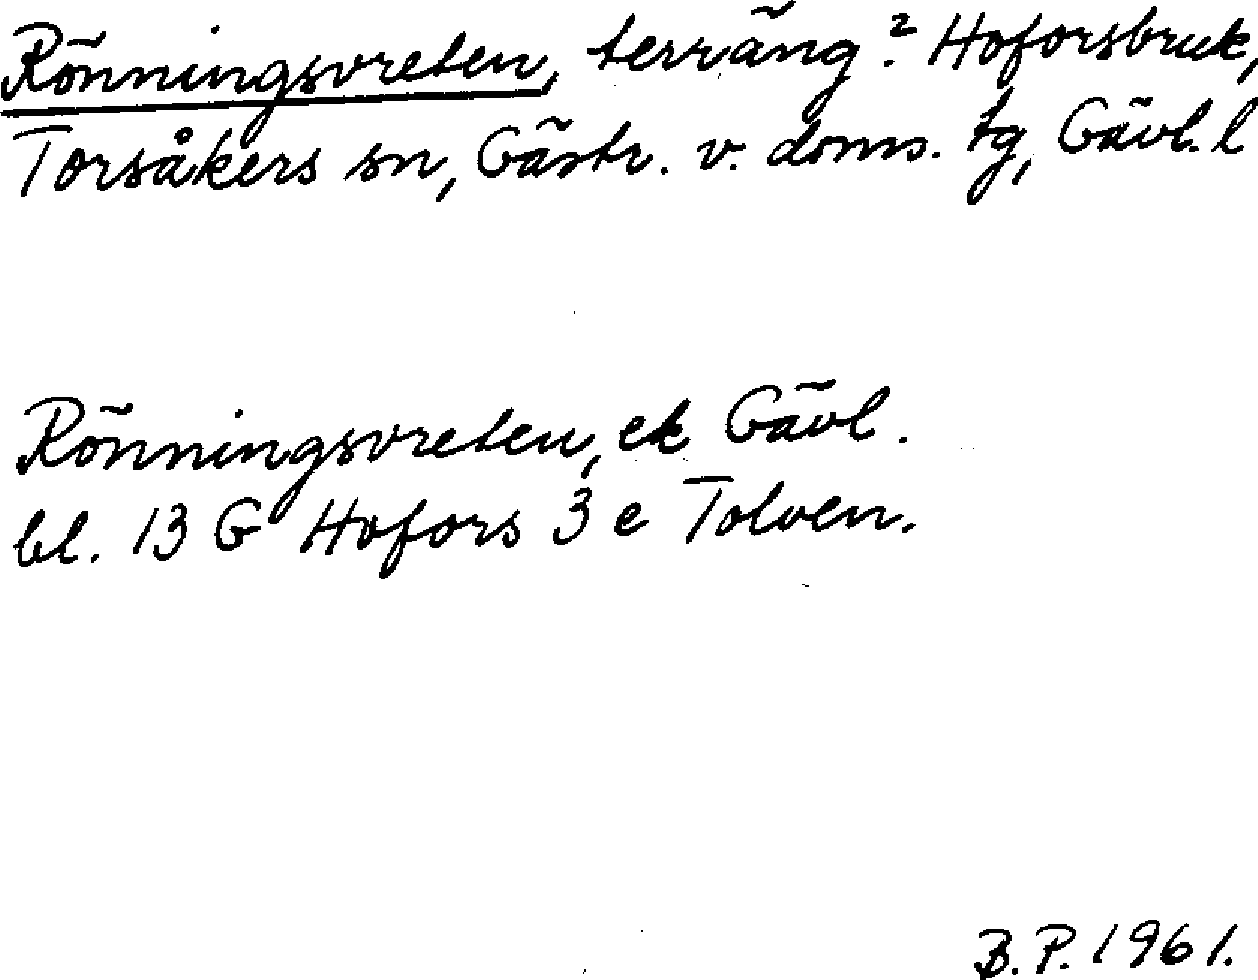 Rönningsvreten, terräng? Hoforsbruk,
Torsåkers sn, Gästr. v. doms. tg, Gävl. l
Rönningsvreten, ek Gävl.
bl. 13 G Hofors 3 e Tolven.
B.P. 1961.